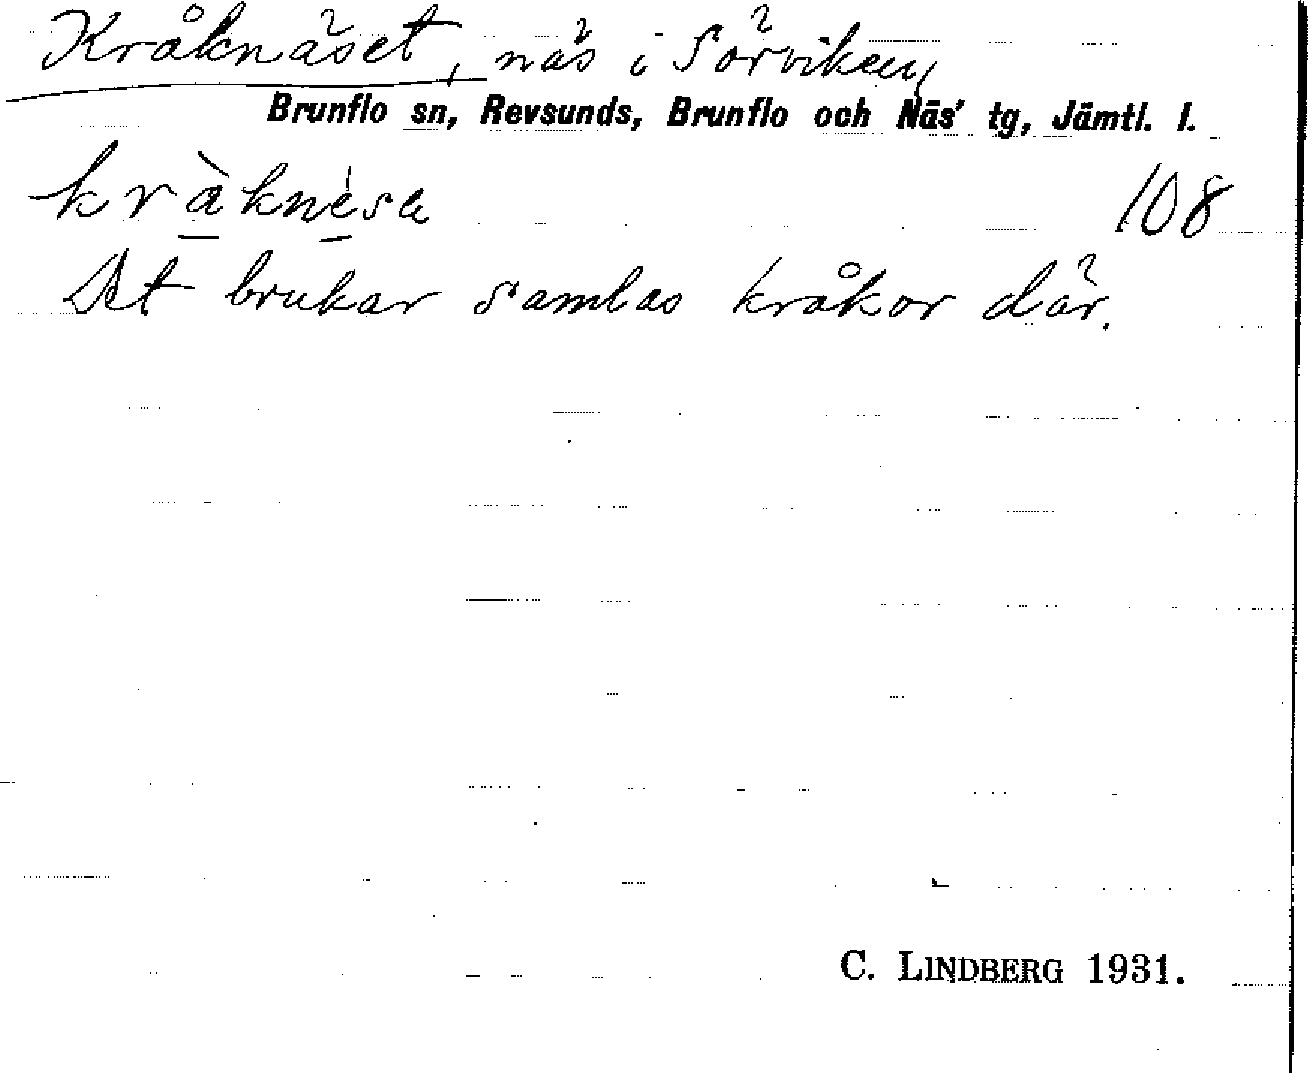 Kråknäset, näs i Sörviken,
Brunflo sn, Revsunds, Brunflo och Näs' tg, Jämtl. l.
kràknésa 108
Det brukar samlas kråkor där.
C. LINDBERG 1931.